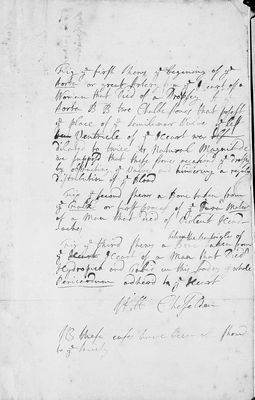 Fig ye first shews ye begining of ye
Aorta or great Artery from ye Heart of a
Woman that Died of a Dropsey
Aorta B B two Chalk stones that
ye place of ye Semilunar Valve ye left
Ventricle of ye Heart was
Dilated to twice its Natural Magnitude
we suppose that these stones occasion'd ye dropsy
by obstructing ye and hindering a regular
distribution of ye Blood
Fig ye second shews a Bone taken from
ye or first process of ye Dura Mater
of a Man that Died of violent Head
aches
between the ventricles of
Fig ye third shews a Bone taken from
ye Heart of a Man that Died
Hydropick and in this body ye whole
Pericardium adhered to ye Heart
Will Cheselden
NB these cases have been shewd
to ye Society